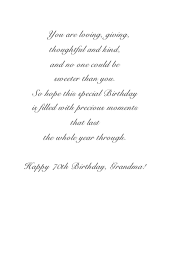 You are loving, giving,
thoughtful and kind,
and no one could be
sweeter than you.
So hope this special Birthday
is filled with precious moments
that last
the whole year through.
Happy 70th Birthday, Grandma!